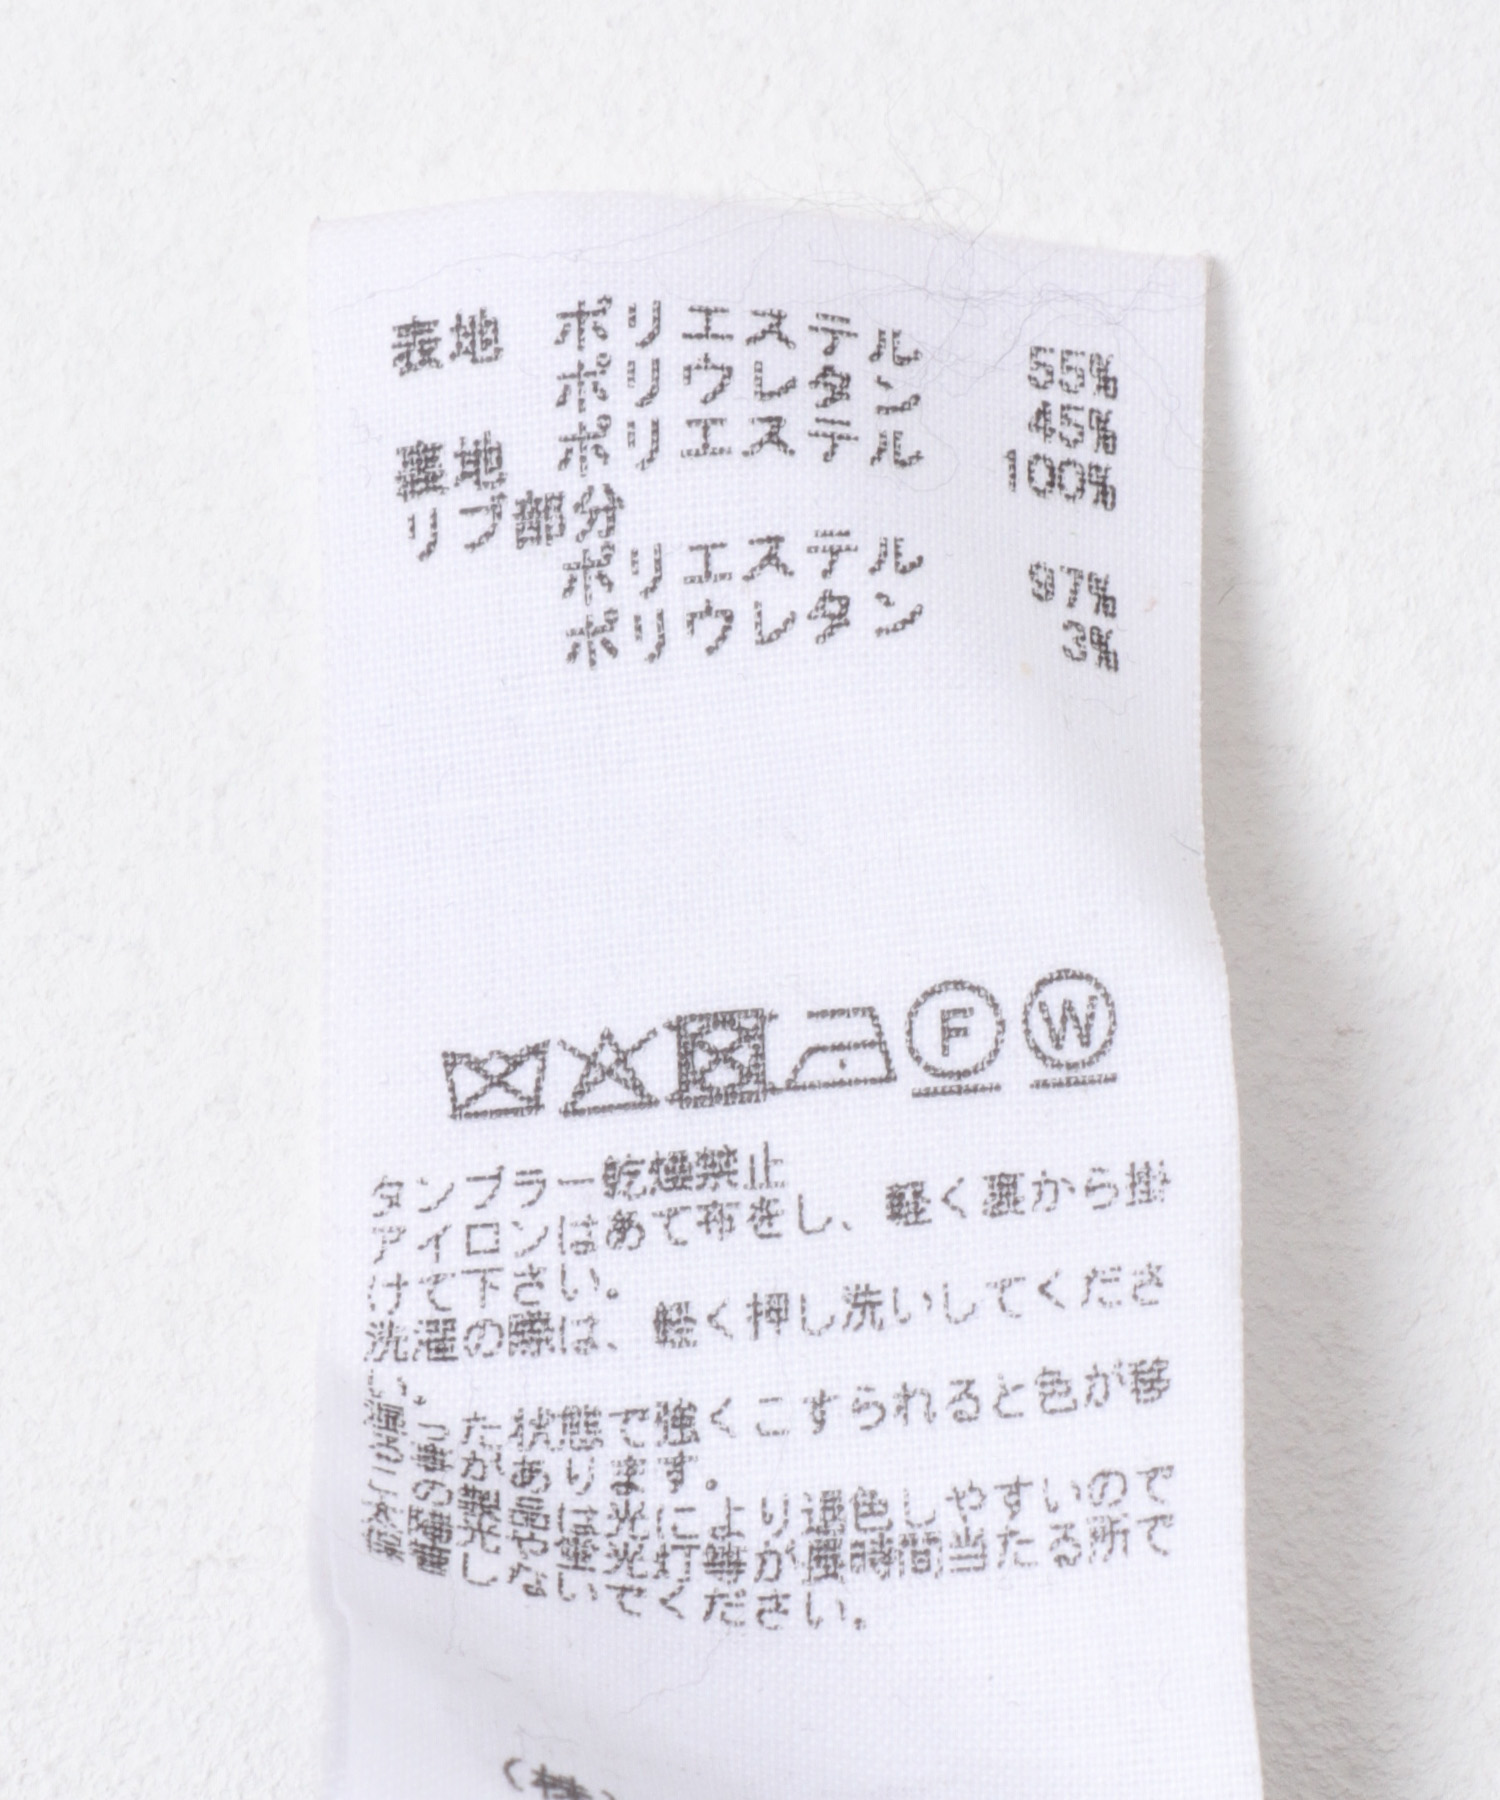 表地 ポリエステル 55%
ポリウレタン 45%
裏地 ポリエステル 100%
リブ部分
ポリエステル 97%
ポリウレタン 3%
F W
タンブラー乾燥禁止
アイロンはあて布をし、軽く裏から掛
けて下さい。
洗濯の際は、軽く押し洗いしてくださ
い。
湿った状態で強くこすられると色が移
る事があります。
この製品は光により退色しやすいので
太陽光や蛍光灯等が長時間当たる所で
保管しないでください。
(株)